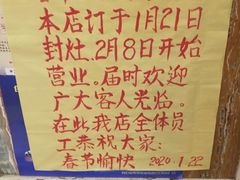 本店订于1月21日
封灶.2月8日开始
营业。届时欢迎
广大客人光临。
在此我店全体员
工恭祝大家:
春节愉快 2020.1.22